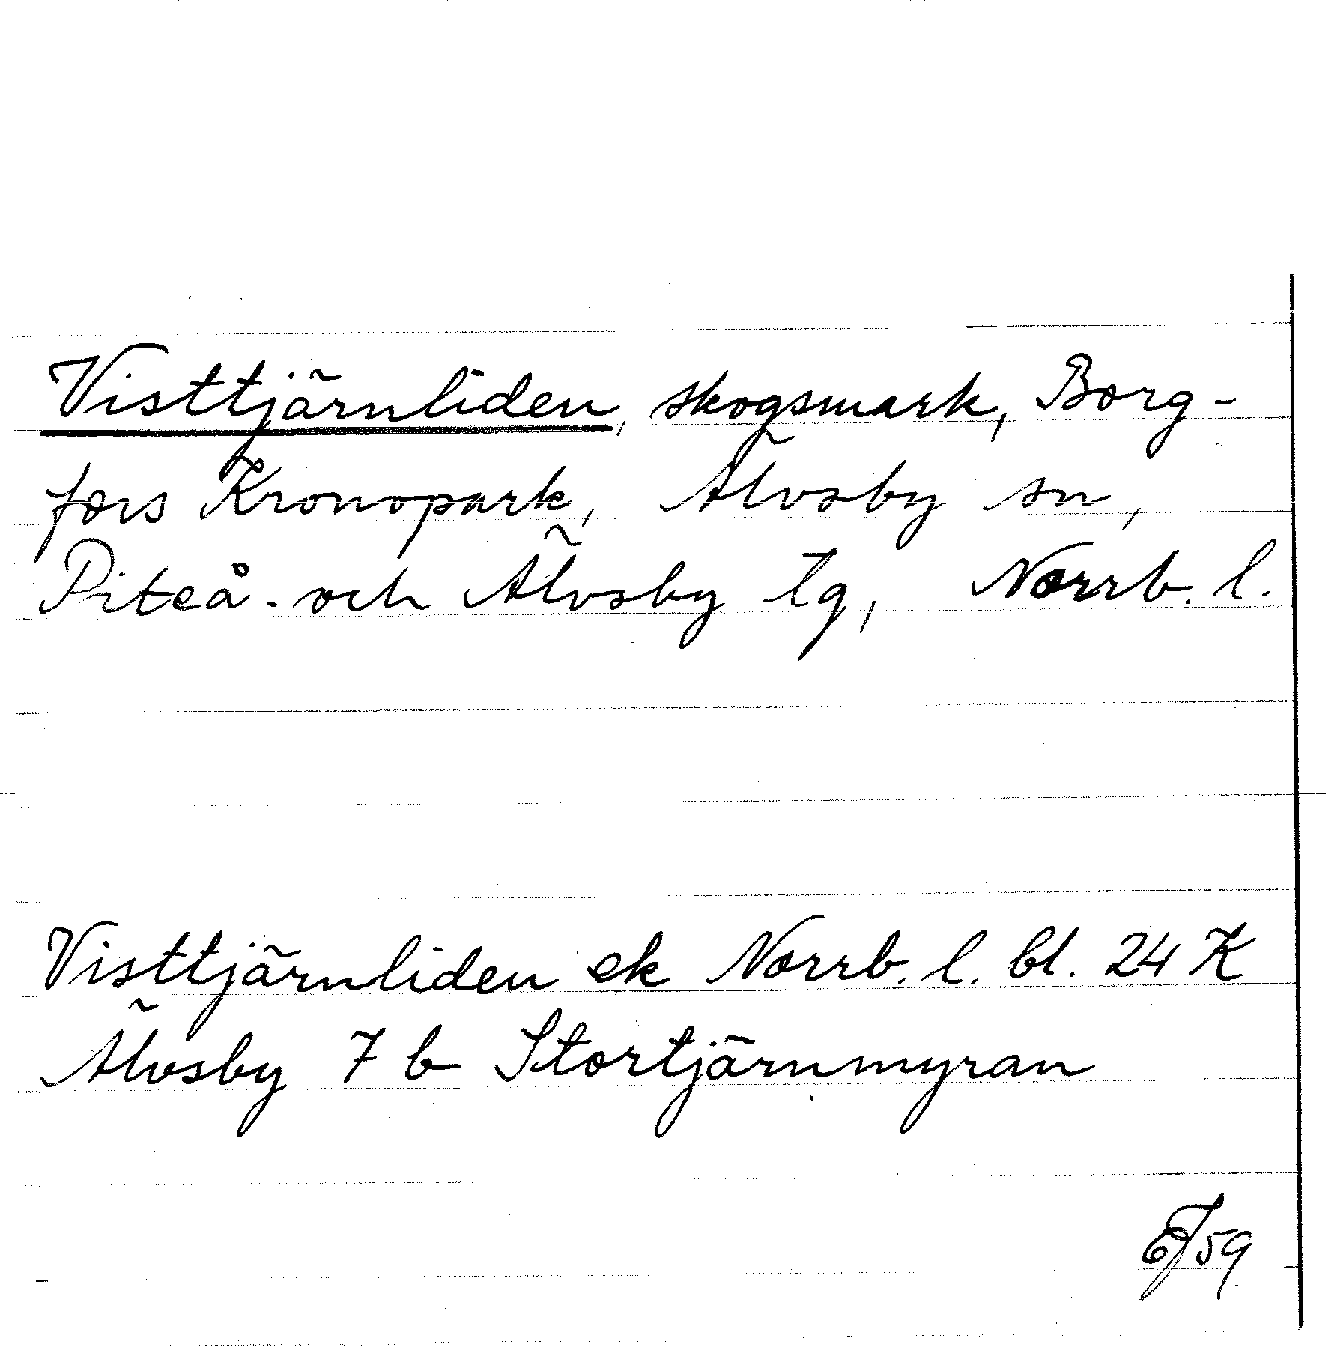 Visttjärnliden, skogsmark, Borg-
fors Kronopark, Älvsby sn,
Piteå- och Älvsby tg, Norrb. l.
Visttjärnliden ek Norrb. l. bl. 24 K
Älvsby 7 b Stortjärnmyran
EJ 59